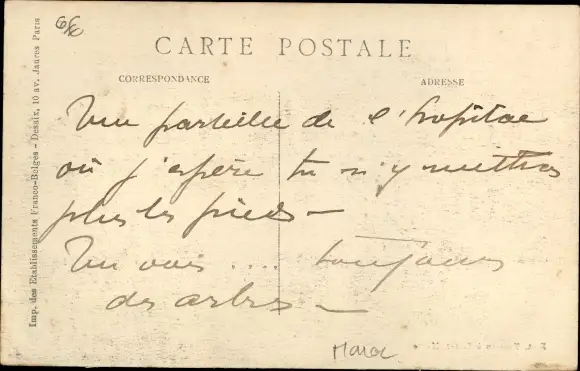 CARTE POSTALE
CORRESPONDANCE
ADRESSE
Une parcelle de l'hôpital
où j'espère tu n'y mettras
plus les pieds –
Tu vois .... toujours
des arbres –
Maroc
Imp. des Etablissements Franco-Belges - Desaix, 10 av. Jaurès Paris